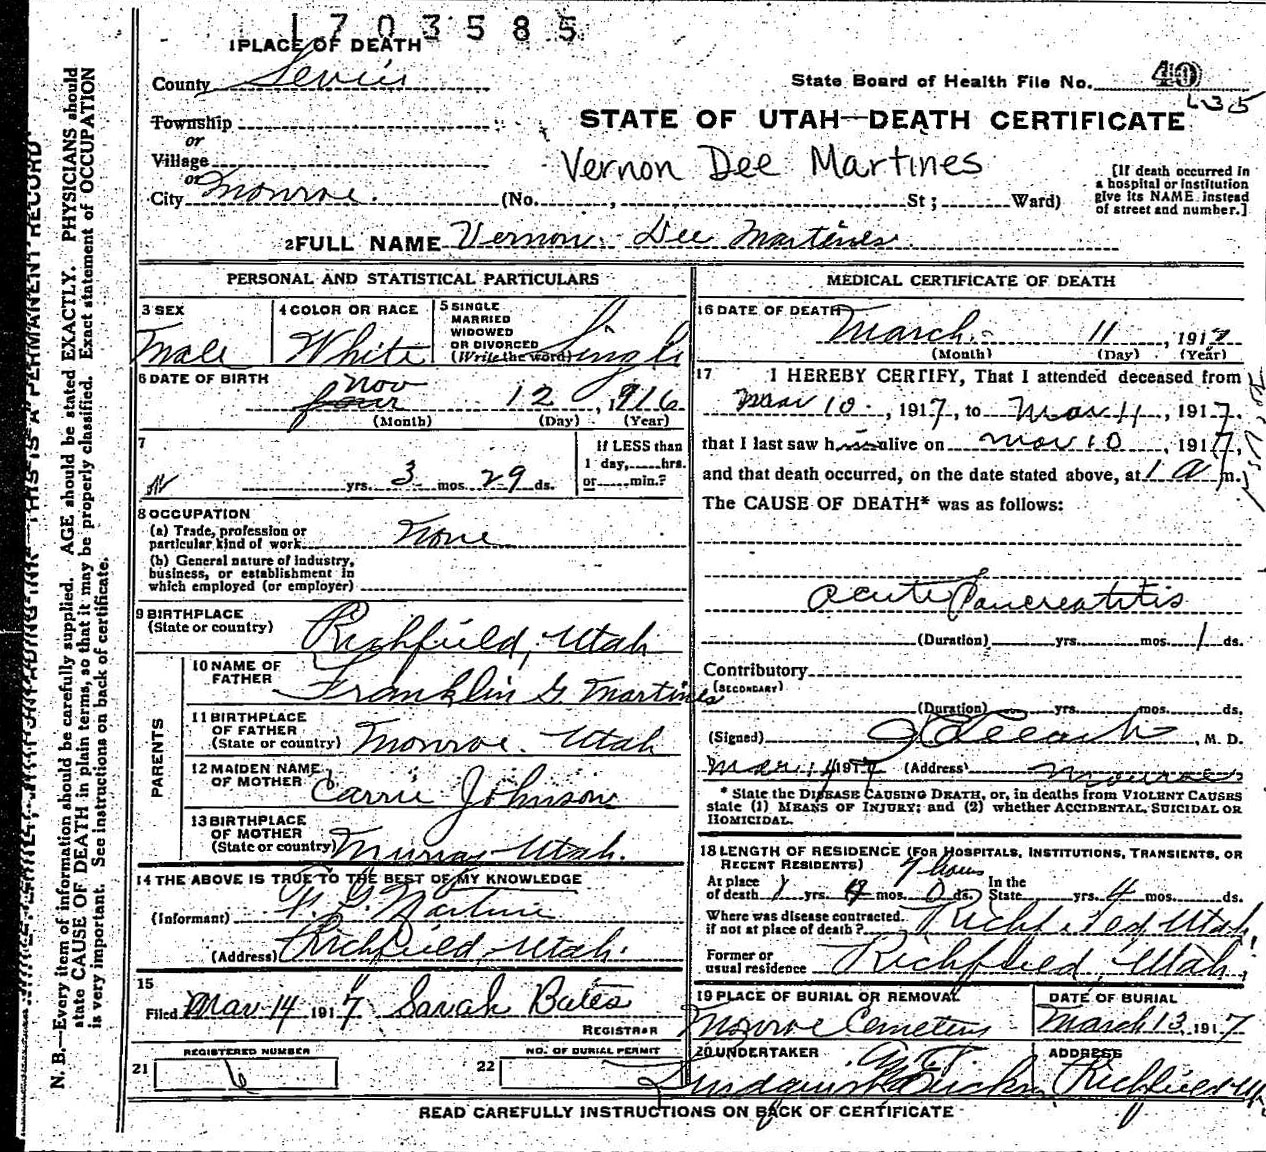 1703585
1 PLACE OF DEATH
County Sevier
State Board of Health File No. 40
435
Township
or
Village
or
City Monroe.
STATE OF UTAH—DEATH CERTIFICATE
Vernon Dee Martines
(No. , St ; Ward)
[If death occurred in
a hospital or institution
give its NAME instead
of street and number.]
2 FULL NAME Vernon Dee Martines
PERSONAL AND STATISTICAL PARTICULARS
3 SEX
Male
4 COLOR OR RACE
White
5 SINGLE
MARRIED
WIDOWED
OR DIVORCED
(Write the word) Single
6 DATE OF BIRTH
Nov 12, 1916
(Month) (Day) (Year)
7
If LESS than
1 day, hrs.
or min.?
yrs. 3 mos. 29 ds.
8 OCCUPATION
(a) Trade, profession or
particular kind of work None
(b) General nature of industry,
business, or establishment in
which employed (or employer)
9 BIRTHPLACE
(State or country) Richfield, Utah
PARENTS
10 NAME OF
FATHER Franklin G. Martines
11 BIRTHPLACE
OF FATHER
(State or country) Monroe. Utah
12 MAIDEN NAME
OF MOTHER Carrie Johnson
13 BIRTHPLACE
OF MOTHER
(State or country) Murray Utah.
14 THE ABOVE IS TRUE TO THE BEST OF MY KNOWLEDGE
(Informant) F. G. Martines
(Address) Richfield, Utah.
15
Filed Mar 14 1917 Sarah Bates
REGISTRAR
21 REGISTERED NUMBER
6
22 NO. OF BURIAL PERMIT
MEDICAL CERTIFICATE OF DEATH
16 DATE OF DEATH
March 11, 1917
(Month) (Day) (Year)
17 I HEREBY CERTIFY, That I attended deceased from
Mar 10, 1917, to Mar 11, 1917.
that I last saw h alive on Mar 10, 1917,
and that death occurred, on the date stated above, at 1 a m.
The CAUSE OF DEATH* was as follows:
Acute Pancreatitis
(Duration) yrs. mos. 1 ds.
Contributory
(SECONDARY)
(Duration) yrs. mos. ds.
(Signed) , M. D.
Mar. 1917 (Address) Monroe
* State the DISEASE CAUSING DEATH, or, in deaths from VIOLENT CAUSES
state (1) MEANS OF INJURY; and (2) whether ACCIDENTAL, SUICIDAL OR
HOMICIDAL.
18 LENGTH OF RESIDENCE (FOR HOSPITALS, INSTITUTIONS, TRANSIENTS, OR
RECENT RESIDENTS) 9 hours
At place
of death yrs. mos. 0 ds. In the
State yrs. 4 ds.
Where was disease contracted.
if not at place of death? Richfield Utah
Former or
usual residence Richfield, Utah
19 PLACE OF BURIAL OR REMOVAL
Monroe Cemetery
DATE OF BURIAL
March 13, 1917
20 UNDERTAKER
ADDRESS
Richfield
READ CAREFULLY INSTRUCTIONS ON BACK OF CERTIFICATE
THIS IS A PERMANENT RECORD
N. B.—Every item of information should be carefully supplied. AGE should be stated EXACTLY. PHYSICIANS should
state CAUSE OF DEATH in plain terms, so that it may be properly classified. Exact statement of OCCUPATION
is very important. See instructions on back of certificate.